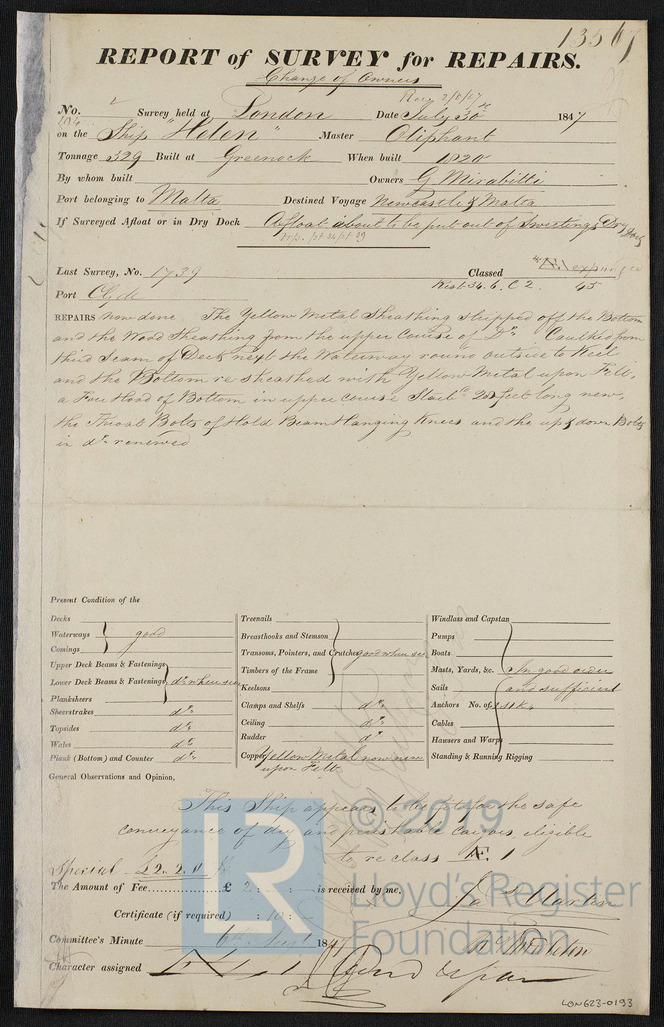 13567
REPORT of SURVEY for REPAIRS.
Change of Owners
No. Survey held at London Date July 30th 1847
on the Ship "Helen" Master Oliphant
Tonnage 329 Built at Greenock When built 1820
By whom built Owners G Mirabitti
Port belonging to Malta Destined Voyage Newcastle & Malta
If Surveyed Afloat or in Dry Dock Afloat about to be put out of Sweetings Dry Dock
Last Survey, No. 1739 Classed
Port Clyde Rest 34. 6. C 2. 45
REPAIRS now done The Yellow Metal Sheathing stripped off the Bottom
and the Wood Sheathing from the upper Course of Do Caulked from
third Seam of Deck next the Waterway round outside to Keel
and the Bottom re sheathed with Yellow Metal upon Felt,
a Fore Hood of Bottom in upper course 20 feet long new,
the Throat Bolts of Hold Beam Hanging Knees and the up & down Bolts
in do renewed
Present Condition of the
Decks
Waterways good
Comings
Upper Deck Beams & Fastenings
Lower Deck Beams & Fastenings do when seen
Planksheers
Sheerstrakes do
Topsides do
Wales do
Plank (Bottom) and Counter do
Treenails
Breasthooks and Stemson
Transoms, Pointers, and Crutches good when seen
Timbers of the Frame
Keelsons
Clamps and Shelfs do
Ceiling do
Rudder do
Copper Yellow Metal now new
upon Felt
Windlass and Capstan
Pumps
Boats
Masts, Yards, &c. In good order
Sails and sufficient
Anchors No. of
Cables
Hawsers and Warps
Standing & Running Rigging
General Observations and Opinion,
This Ship appears to be fit for the safe
conveyance of dry and perishable Cargoes, eligible
to re class Æ 1
Special £2. 2. 0
The Amount of Fee £ 2 : : is received by me,
Certificate (if required) : 10 :
Committee's Minute 6th August 1847
Character assigned
© 2019
LR
Lloyd's Register
Foundation
LON623-0193